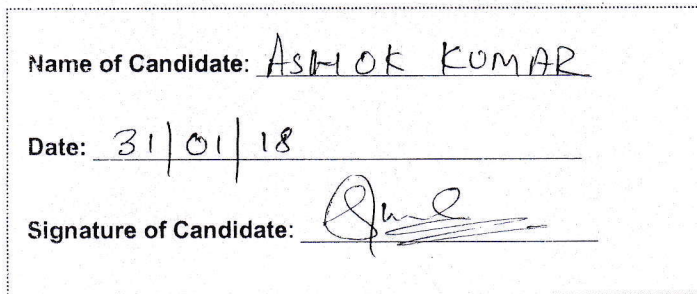 Name of Candidate: ASHOK KUMAR
Date: 31/01/18
Signature of Candidate: